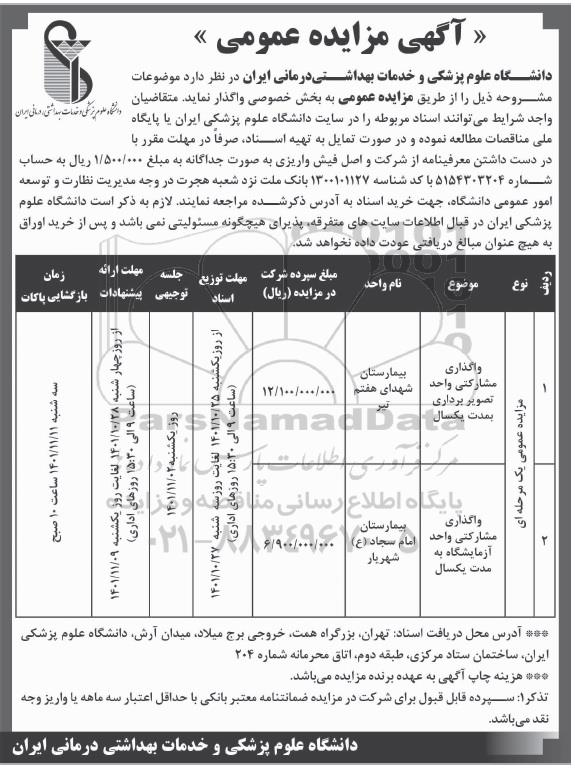 « آگهی مزایده عمومی »
دانشگاه علوم پزشکی و خدمات بهداشتی درمانی ایران
دانشـــگاه علوم پزشکی و خدمات بهداشـــتی‌درمانی ایران در نظر دارد موضوعات
مشـــروحه ذیل را از طریق مزایده عمومی به بخش خصوصی واگذار نماید. متقاضیان
واجد شرایط می‌توانند اسناد مربوطه را در سایت دانشگاه علوم پزشکی ایران یا پایگاه
ملی مناقصات مطالعه نموده و در صورت تمایل به تهیه اســـناد، صرفاً در مهلت مقرر با
در دست داشتن معرفینامه از شرکت و اصل فیش واریزی به صورت جداگانه به مبلغ ۱/۵۰۰/۰۰۰ ریال به حساب
شـــماره ۵۱۵۴۳۰۳۲۰۴ با کد شناسه ۱۳۰۰۱۰۱۱۲۷ بانک ملت نزد شعبه هجرت در وجه مدیریت نظارت و توسعه
امور عمومی دانشگاه، جهت خرید اسناد به آدرس ذکرشده مراجعه نمایند. لازم به ذکر است دانشگاه علوم
پزشکی ایران در قبال اطلاعات سایت های متفرقه، پذیرای هیچگونه مسئولیتی نمی باشد و پس از خرید اوراق
به هیچ عنوان مبالغ دریافتی عودت داده نخواهد شد.
ردیف
نوع
موضوع
نام واحد
مبلغ سپرده شرکت
در مزایده (ریال)
مهلت توزیع
اسناد
جلسه
توجیهی
مهلت ارائه
پیشنهادات
زمان
بازگشایی پاکات
۱
مزایده عمومی یک مرحله ای
واگذاری
مشارکتی واحد
تصویر برداری
بمدت یکسال
بیمارستان
شهدای هفتم
تیر
۱۲/۱۰۰/۰۰۰/۰۰۰
از روز یکشنبه ۱۴۰۱/۱۰/۲۵ لغایت روز سه شنبه ۱۴۰۱/۱۰/۲۷
(ساعت ۹ الی ۱۵:۳۰ روزهای اداری)
روز یکشنبه ۱۴۰۱/۱۱/۰۲
از روز چهار شنبه ۱۴۰۱/۱۰/۲۸ لغایت روز یکشنبه ۱۴۰۱/۱۱/۰۹
(ساعت ۹ الی ۱۵:۳۰ روزهای اداری)
سه شنبه ۱۴۰۱/۱۱/۱۱ ساعت ۱۰ صبح
۲
واگذاری
مشارکتی واحد
آزمایشگاه به
مدت یکسال
بیمارستان
امام سجاد (ع)
شهریار
۶/۹۰۰/۰۰۰/۰۰۰
ParsNamadData
مرکز فرآوری اطلاعات پارس نماد داده ها
پایگاه اطلاع رسانی مناقصه و مزایده
۰۲۱-۸۸۳۴۹۶۷۰-۵
*** آدرس محل دریافت اسناد: تهران، بزرگراه همت، خروجی برج میلاد، میدان آرش، دانشگاه علوم پزشکی
ایران، ساختمان ستاد مرکزی، طبقه دوم، اتاق محرمانه شماره ۲۰۴
*** هزینه چاپ آگهی به عهده برنده مزایده می‌باشد.
تذکر۱: ســـپرده قابل قبول برای شرکت در مزایده ضمانتنامه معتبر بانکی با حداقل اعتبار سه ماهه یا واریز وجه
نقد می‌باشد.
دانشگاه علوم پزشکی و خدمات بهداشتی درمانی ایران